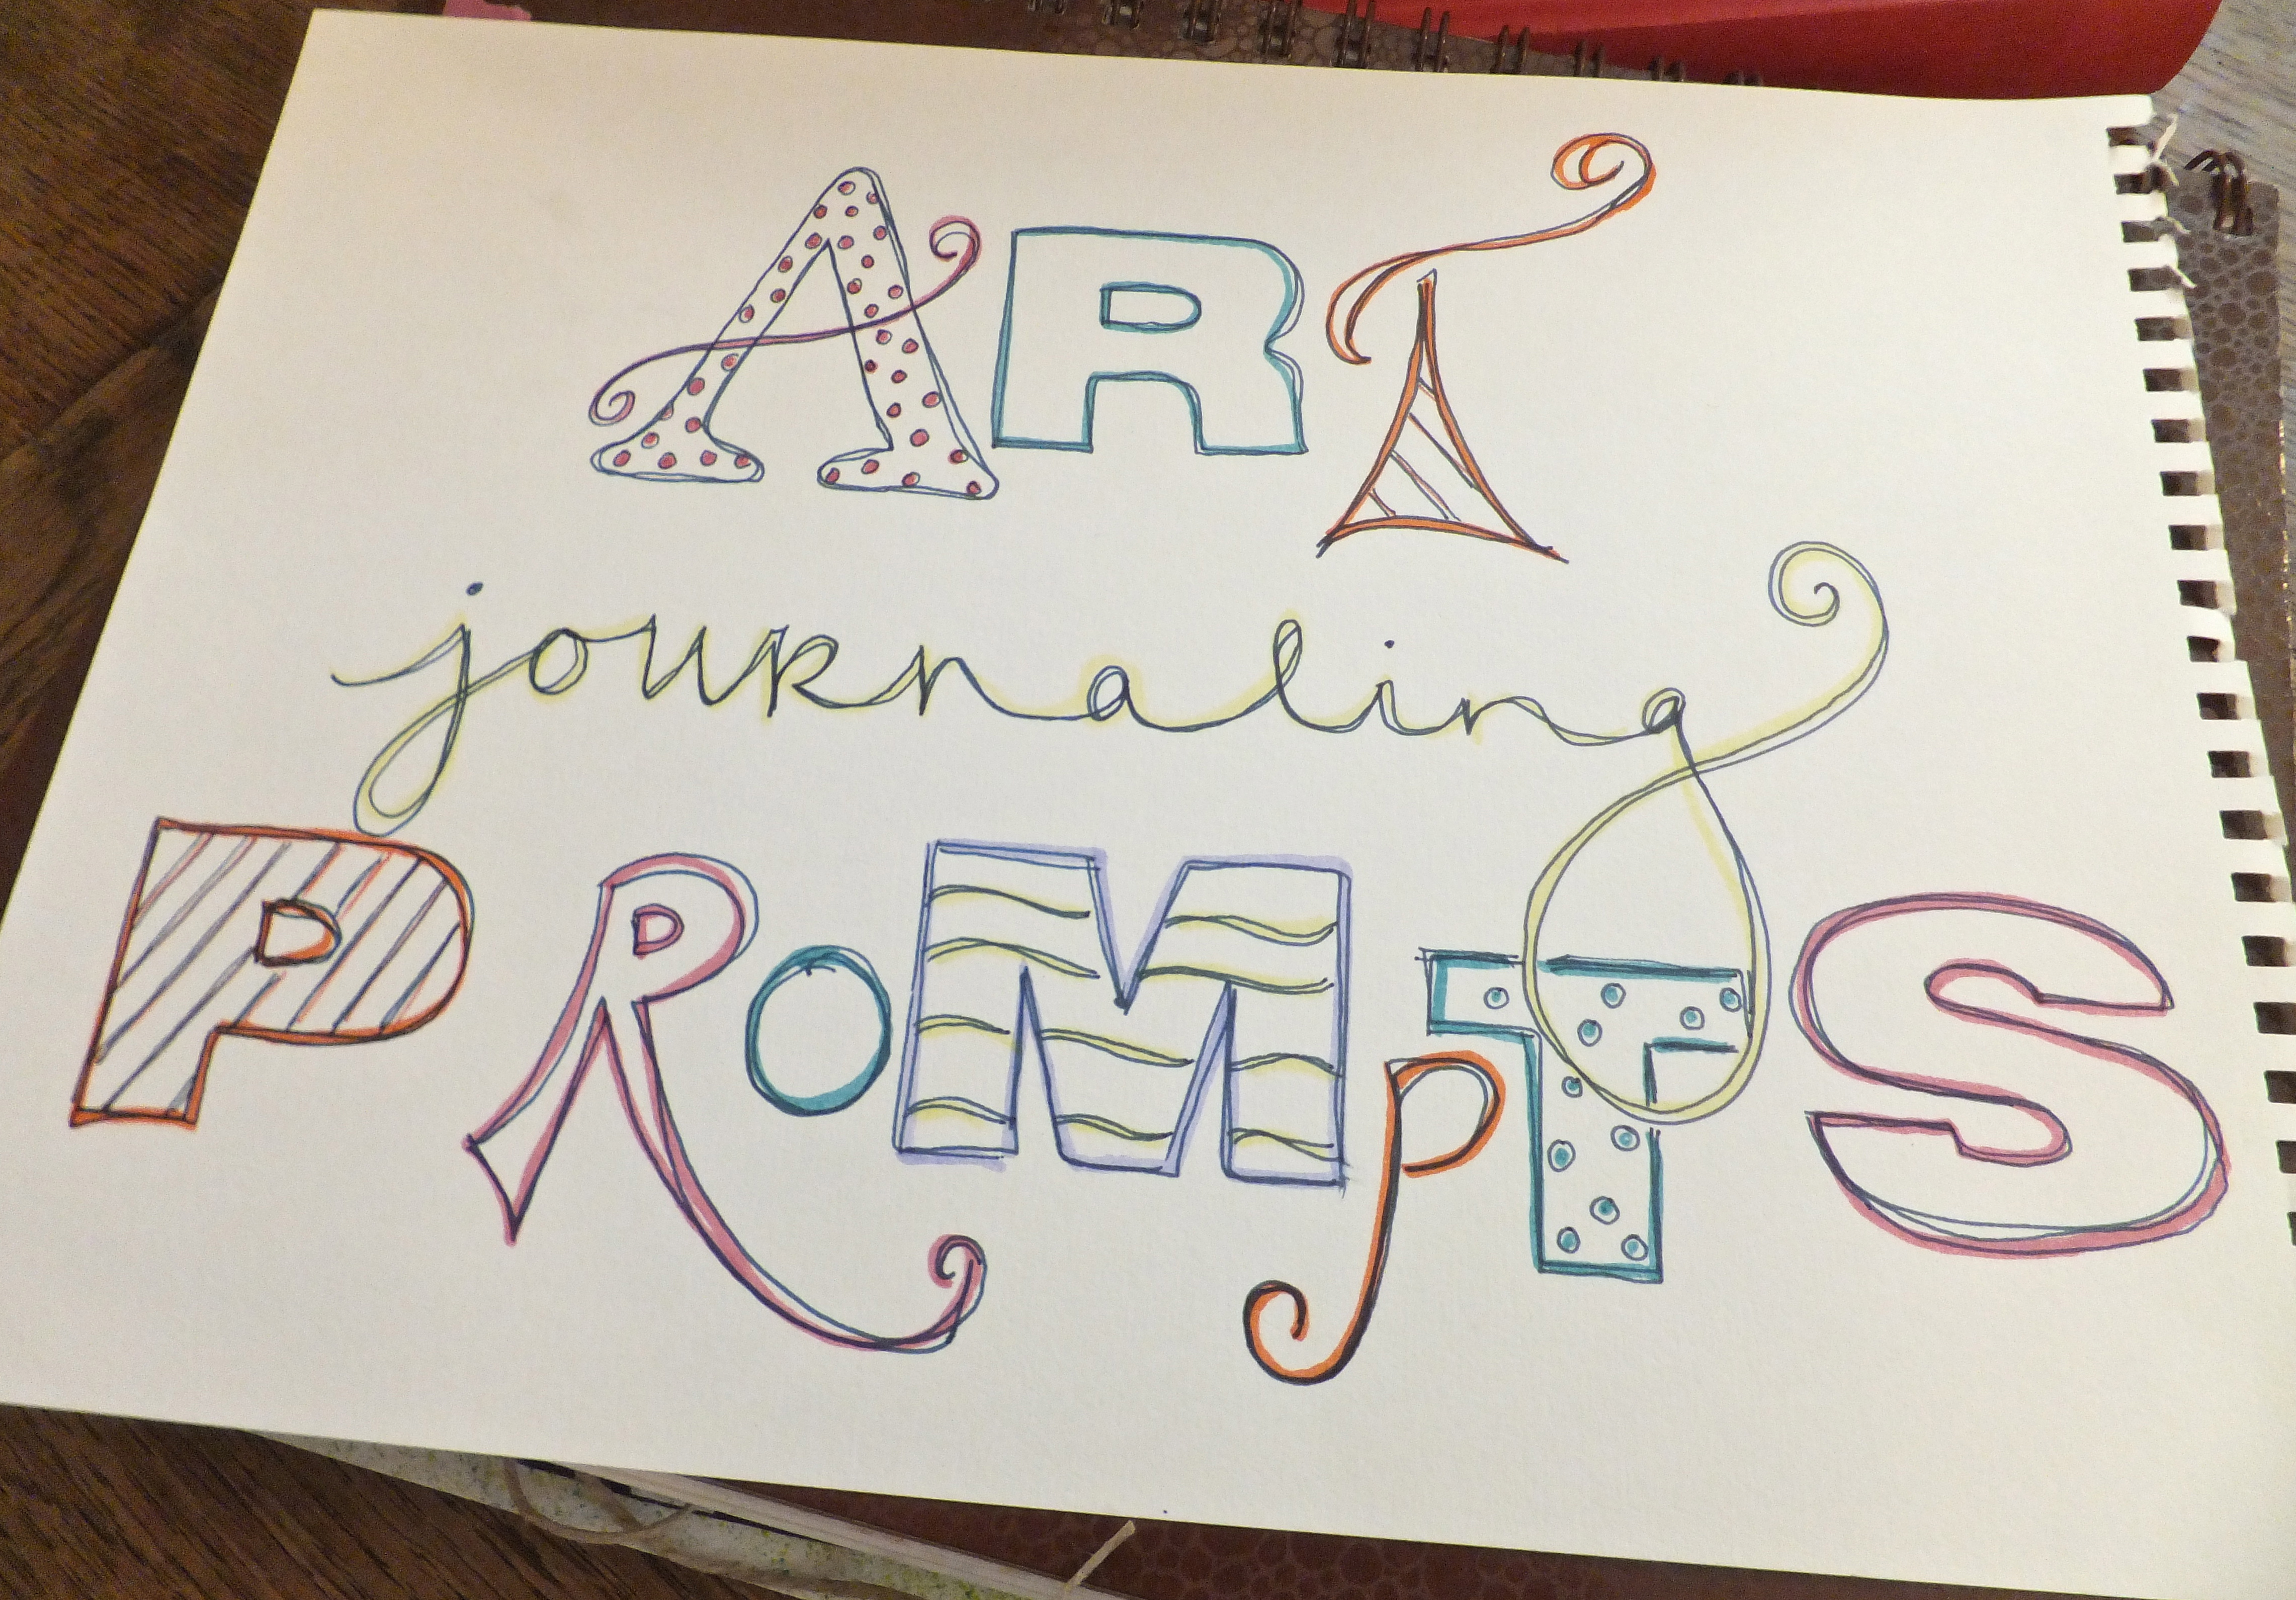 ART
journaling
PROMpTS